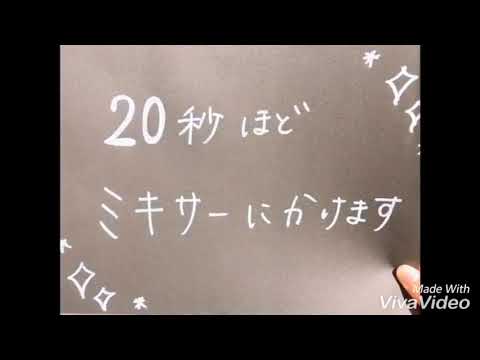 20秒ほど
ミキサーにかけます
Made With
VivaVideo